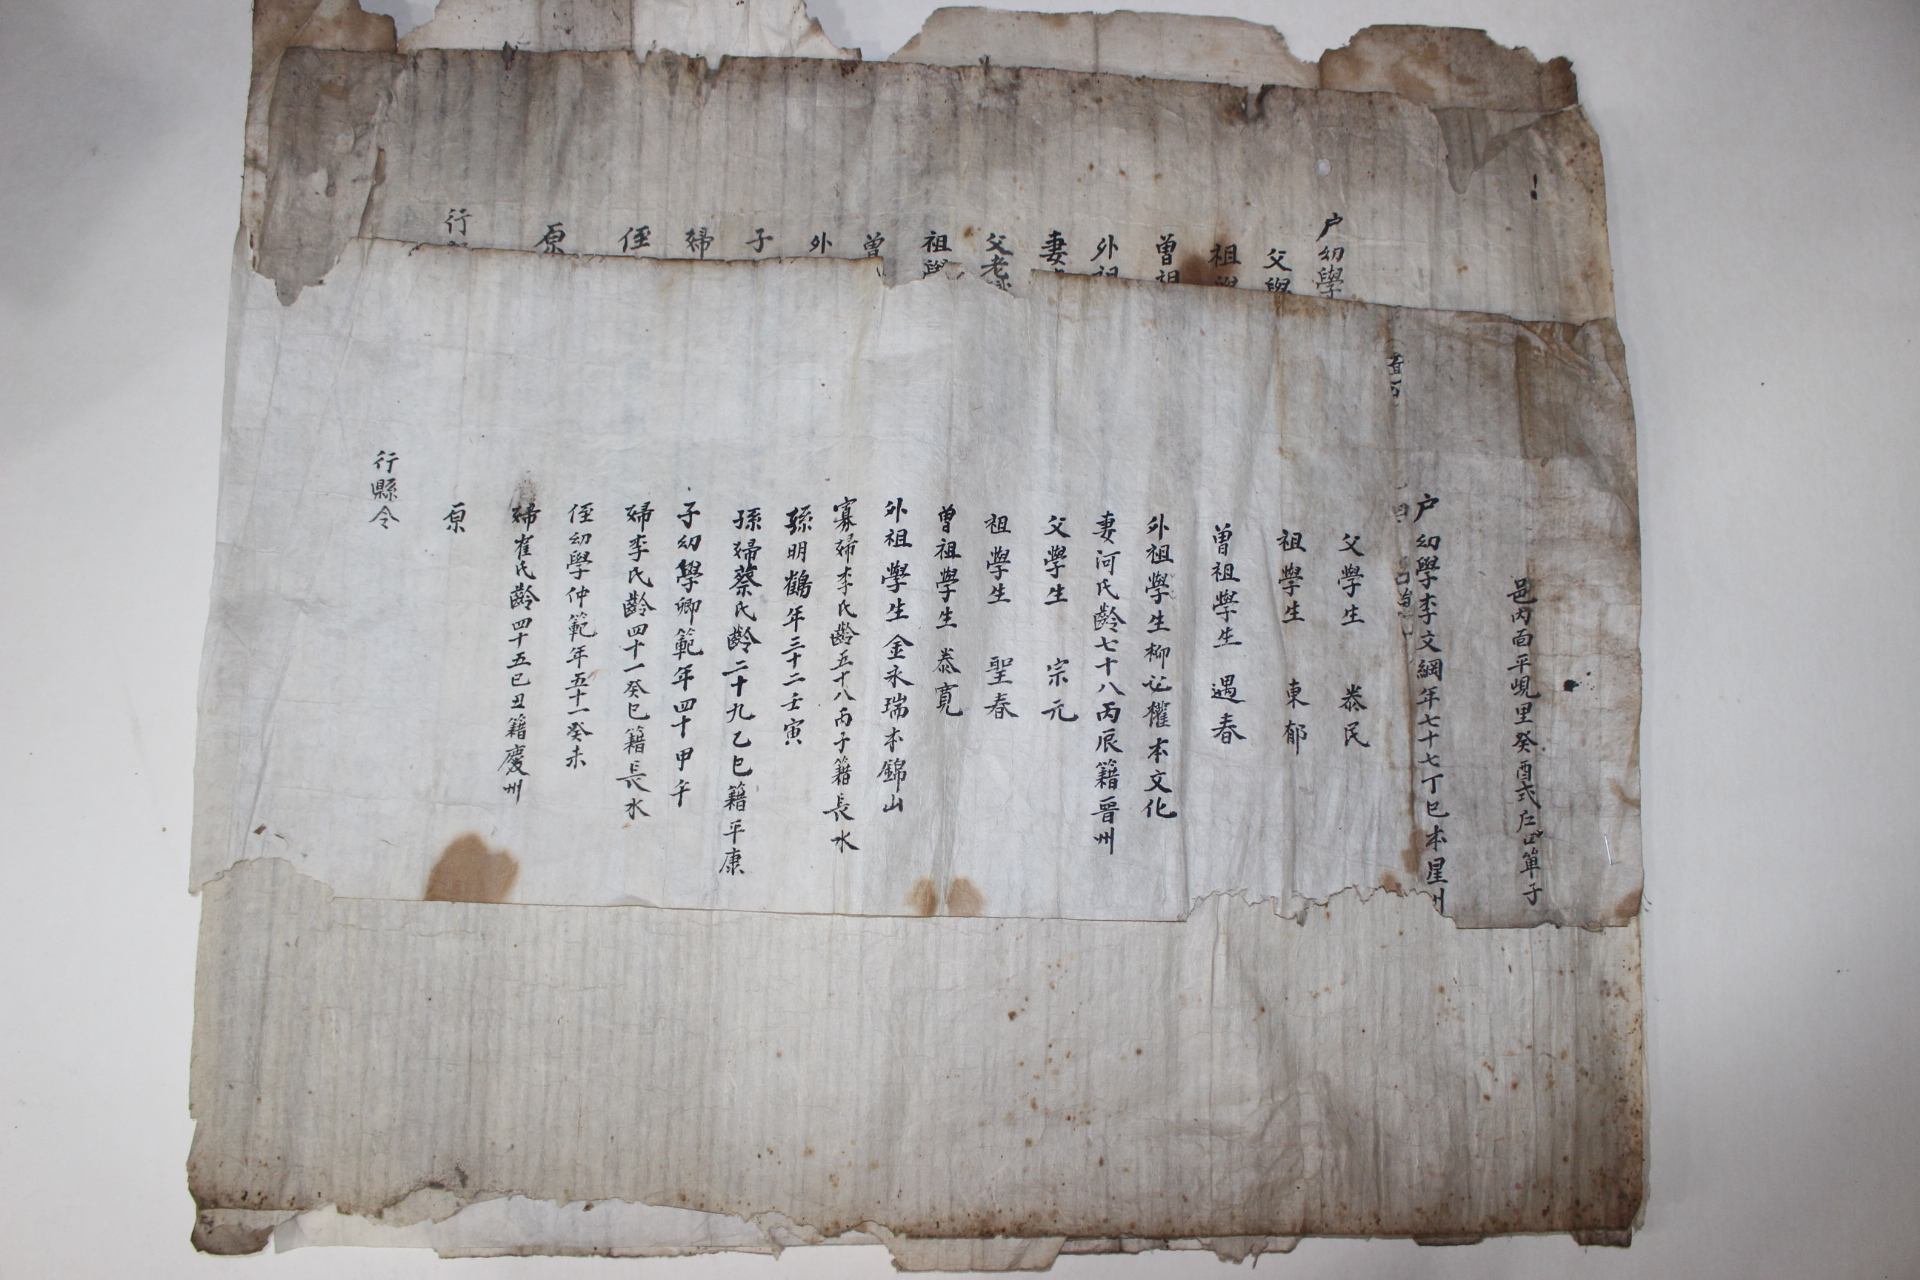 邑內面平峴里癸酉式戶口單子
戶幼學李文綱年七十七丁巳本星州
父學生 泰民
祖學生 東郁
曾祖學生 遇春
外祖學生柳必權本文化
妻河氏齡七十八丙辰籍晉州
父學生 宗元
祖學生 聖春
曾祖學生 泰寬
外祖學生金永瑞本錦山
寡婦李氏齡五十八丙子籍長水
孫明鶴年三十二壬寅
孫婦蔡氏齡二十九乙巳籍平康
子幼學卿範年四十甲午
婦李氏齡四十一癸巳籍長水
侄幼學仲範年五十一癸未
婦崔氏齡四十五己丑籍慶州
原
行縣令
戶幼學
父學
祖學
曾祖
外祖
妻
父老
祖學
曾
外
子
婦
侄
原
行